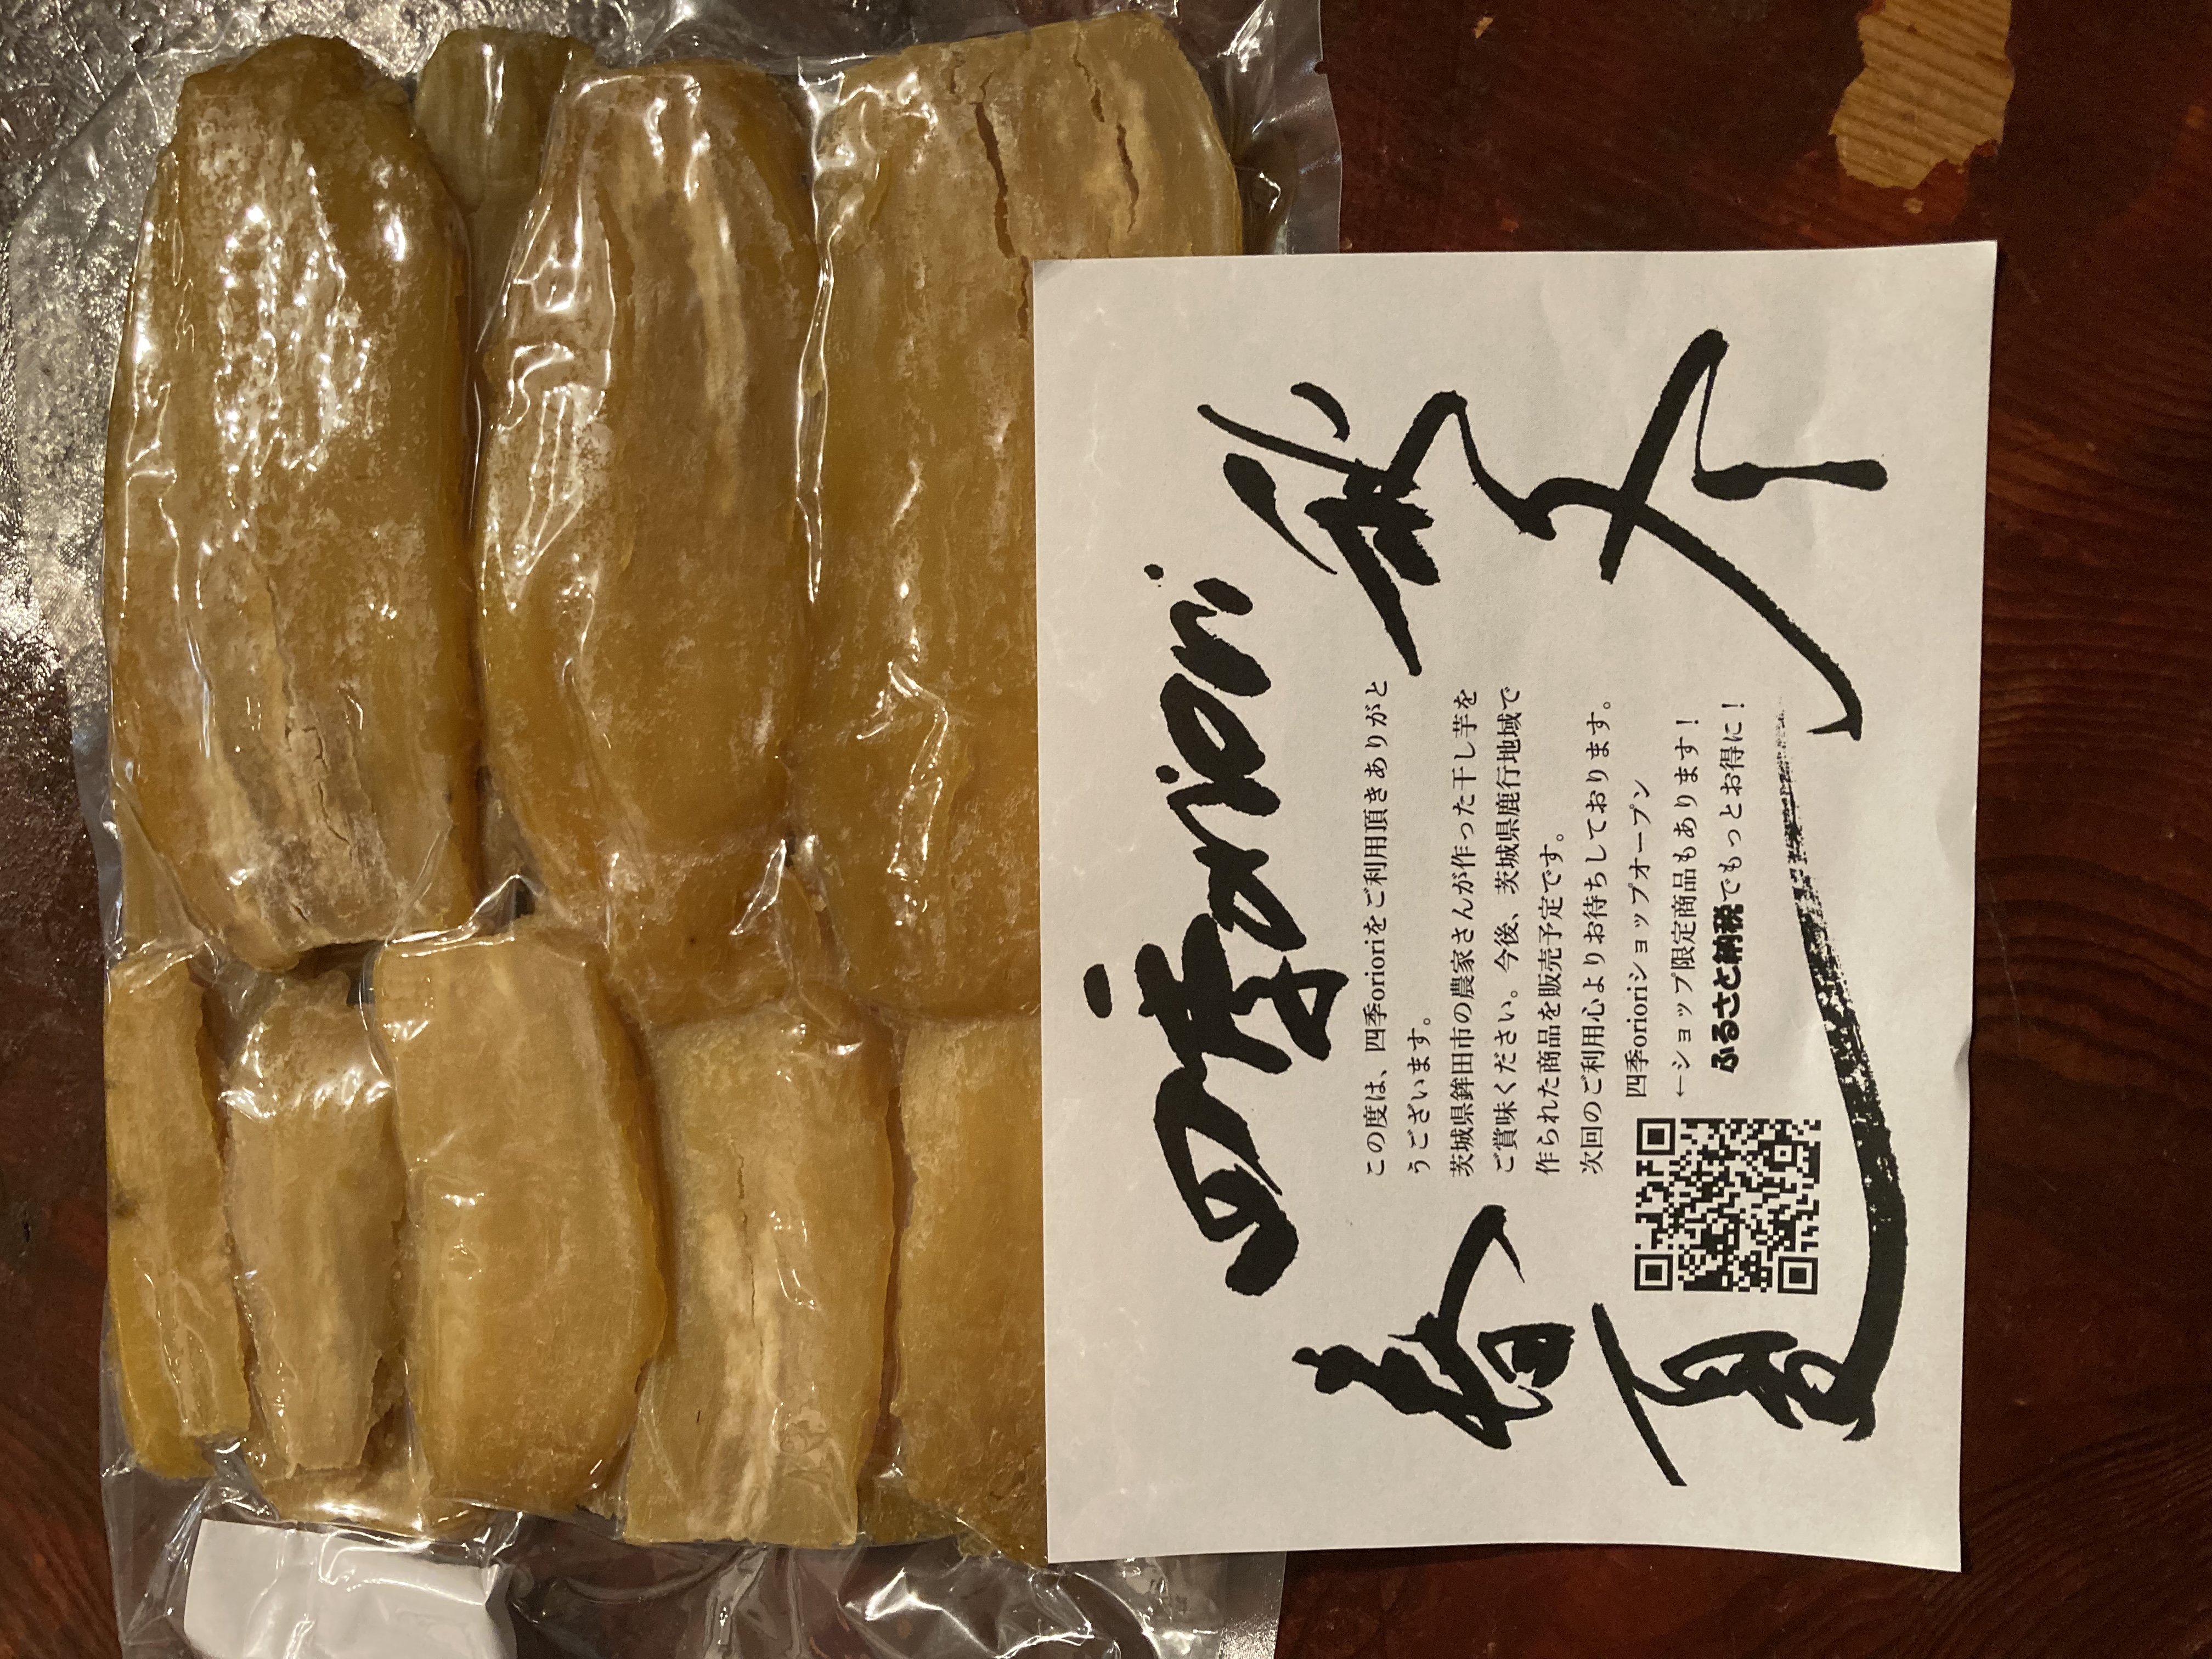 四季oriori
春
夏
秋
冬
この度は、四季orioriをご利用頂きありがと
うございます。
茨城県鉾田市の農家さんが作った干し芋を
ご賞味ください。今後、茨城県鹿行地域で
作られた商品を販売予定です。
次回のご利用心よりお待ちしております。
四季orioriショップオープン
←ショップ限定商品もあります！
ふるさと納税でもっとお得に！